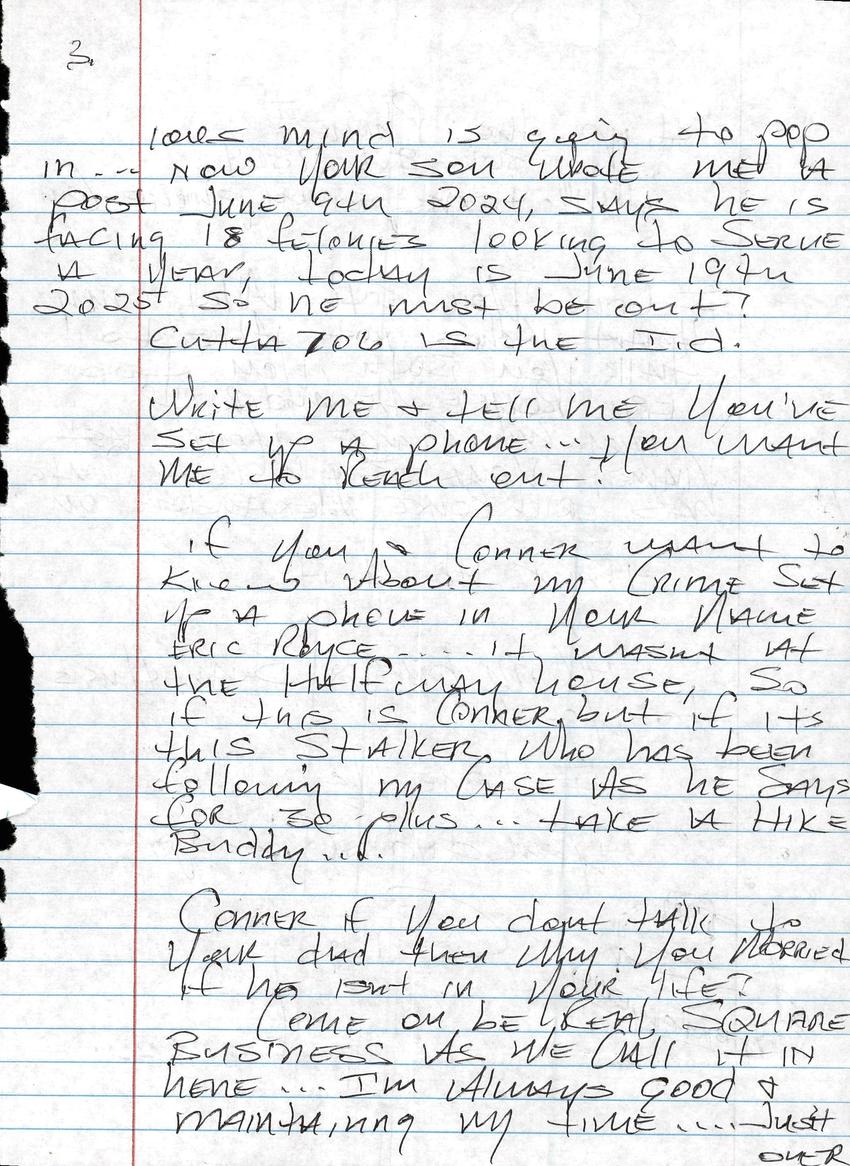 3.
mind is going to pop
in ... Now your son wrote me a
post June 9th 2024, says he is
facing 18 felonies looking to serve
a year, today is June 19th
2025 so he must be out?
Cutta 706 is the I.d.
Write me & tell me you've
set up a phone... you want
me to reach out?
if you & Conner want to
know about my crime set
up a phone in your name
Eric Royce ..... it wasnt at
the Halfway house, so
if this is Conner, but if its
this stalker who has been
following my case as he says
for 30 plus ... take a hike
Buddy ....
Conner if you dont talk to
your dad then why you worried
if he isnt in your life?
Come on be real, square
business as we call it in
here ... I'm always good &
maintaining my time .... Just
over